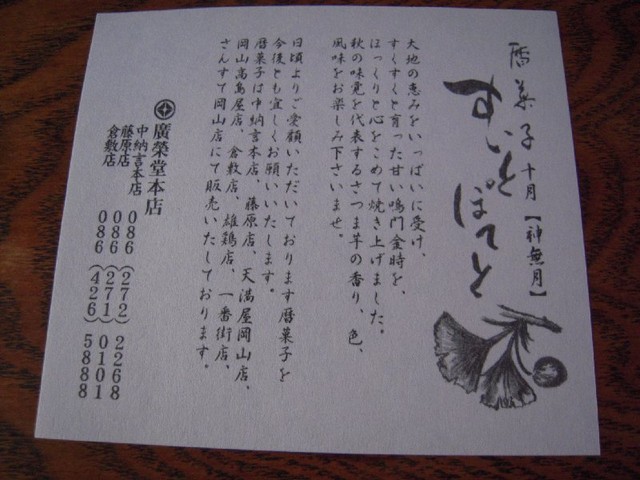 暦菓子 十月【神無月】
すいとぽてと
大地の恵みをいっぱいに受け、
すくすくと育った甘い鳴門金時を、
ほっくりと心をこめて焼き上げました。
秋の味覚を代表するさつま芋の香り、色、
風味をお楽しみ下さいませ。
日頃よりご愛顧いただいております暦菓子を
今後とも宜しくお願いいたします。
暦菓子は中納言本店、藤原店、天満屋岡山店、
岡山高島屋店、倉敷店、雄鶏店、一番街店、
さんすて岡山店にて販売いたしております。
廣榮堂本店
中納言本店 086(272)2268
藤原店 086(271)0101
倉敷店 086(426)5888